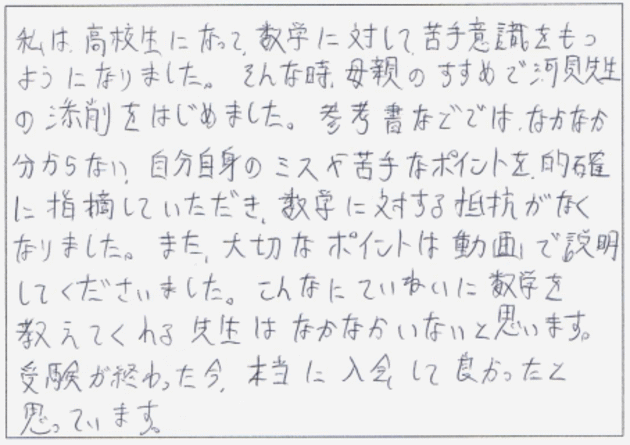 私は、高校生になって、数学に対して苦手意識をもつ
ようになりました。そんな時、母親のすすめで河見先生
の添削をはじめました。参考書などでは、なかなか
分からない、自分自身のミスや苦手なポイントを、的確
に指摘していただき、数学に対する抵抗がなく
なりました。また、大切なポイントは動画で説明
してくださいました。こんなにていねいに数学を
教えてくれる先生はなかなかいないと思います。
受験が終わった今、本当に入会して良かったと
思っています。